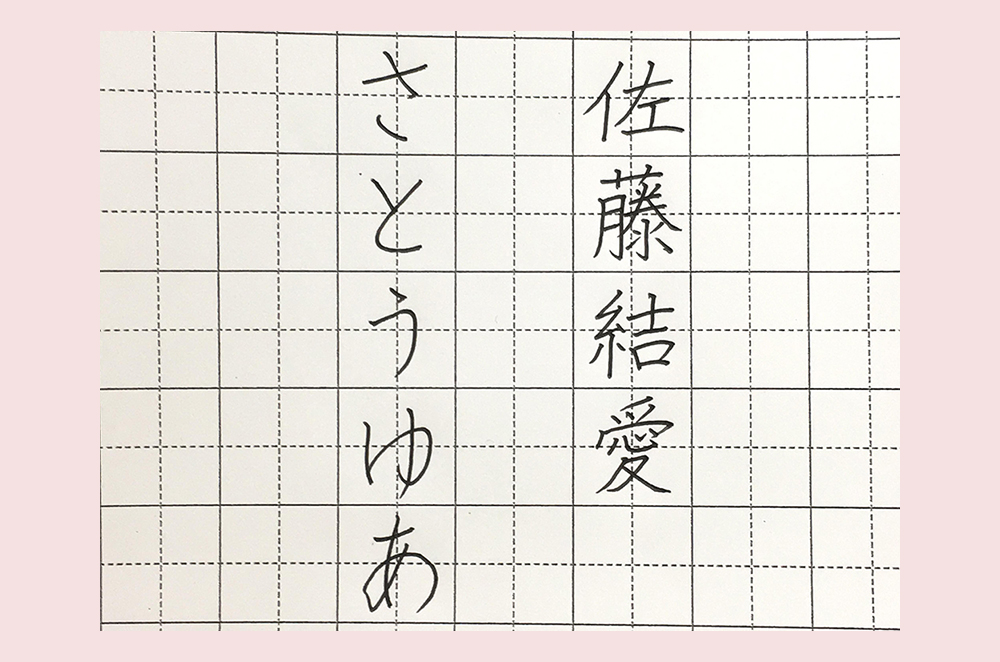 佐藤結愛
さとうゆあ